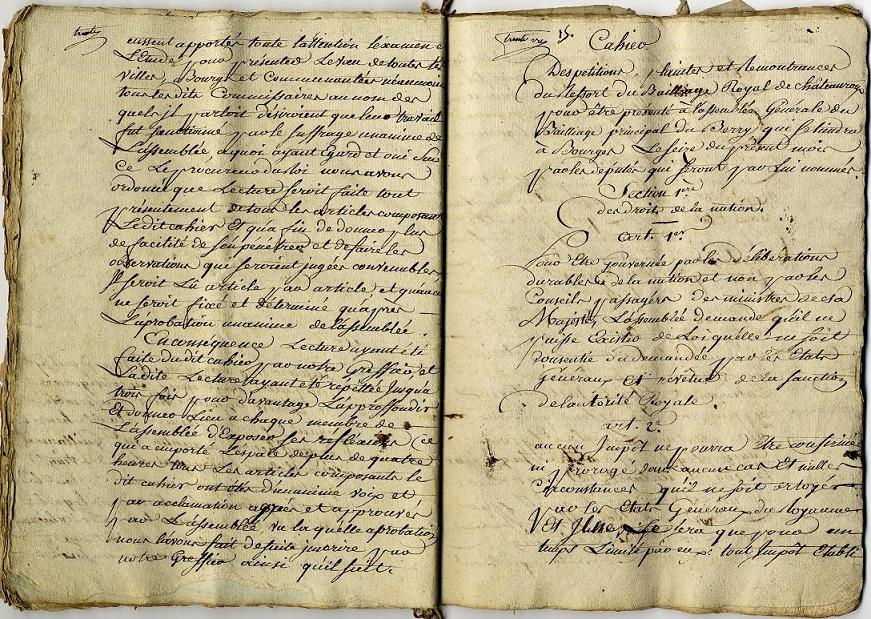 trente
eussent apportés toute l'attention l'examen et
L'Etude pour présenter Le vœu de toutes les
villes, Bourgs et Communautés néenmoins
tous lesdits Commissaires au nom des
quels il parloit désiroient que leur travail
fut sanctionné par le suffrage unanime de
L'assemblée a quoi ayant Egard et ouï sur
ce Le procureur du Roi nous avons
ordonné que Lecture seroit faite tout
présentement de tous les articles composant
Ledit cahier Et qu'a fin de donner plus
de facilité de s'en pénétrer et de faire les
observations qui seroient jugées convenables
Il seroit Lû article par article et qu'aucun
ne seroit fixé et déterminé qu'après
L'aprobation unanime de l'assemblée.
En conséquence Lecture ayant été
faite dudit cahier par notre Greffier et
La dite Lecture ayant été répettée jusqu'a
trois fois pour davantage L'approffondir
Et donner Lieu a chaque membre de
L'assemblée d'Exposer ses réflexions (ce
qui a emporté L'espace de plus de quatre
heures tous Les articles composants le
dit cahier ont étés d'unanime voix et
par acclamation agréés et approuvés
par L'assemblée vu la quelle aprobation
nous L'avons fait de suite inscrire par
notre Greffier ainsi qu'il suit.
trente un 15.
Cahier
Des petitions, plaintes et Remontrances
du Ressort du Bailliage Royal de Châteauroux
pour être présenté à l'assemblée Générale du
Bailliage principal du Berry qui se tiendra
à Bourges Le seize du présent mois
par les députés qui seront par Lui nommés.
Section 1ere
des droits de la nation.
art. 1er
Pour Etre gouvernée par les délibérations
durables de la nation et non par les
Conseils passagers des ministres de Sa
Majesté, L'assemblée demande qu'il ne
puisse Exister de Loi qu'elle ne soit
consentie ou demandée par les Etats
Généraux Et revêtue de la sanction
de l'autorité Royale.
art. 2e
aucun Impôt ne pourra Etre conservé
ni prorogé dans aucun cas Et nulles
Circonstances qu'il ne soit octroyé
par les Etats Généraux du Royaume
Et Il ne Le sera que pour un
temps Limité par eux: tout Impôt Etabli